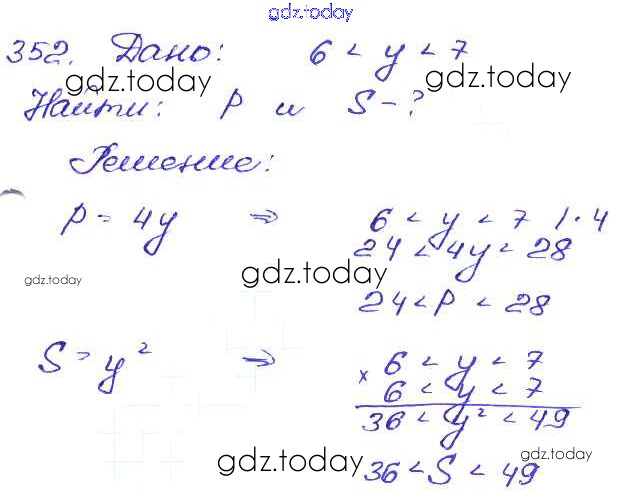 gdz.today
352. Дано: 6 < y < 7
gdz.today gdz.today
Найти: P и S - ?
Решение:
P = 4y ⇒ 6 < y < 7 | · 4
24 < 4y < 28
gdz.today gdz.today
24 < P < 28
S = y² ⇒ × 6 < y < 7
6 < y < 7
36 < y² < 49
gdz.today gdz.today
36 < S < 49